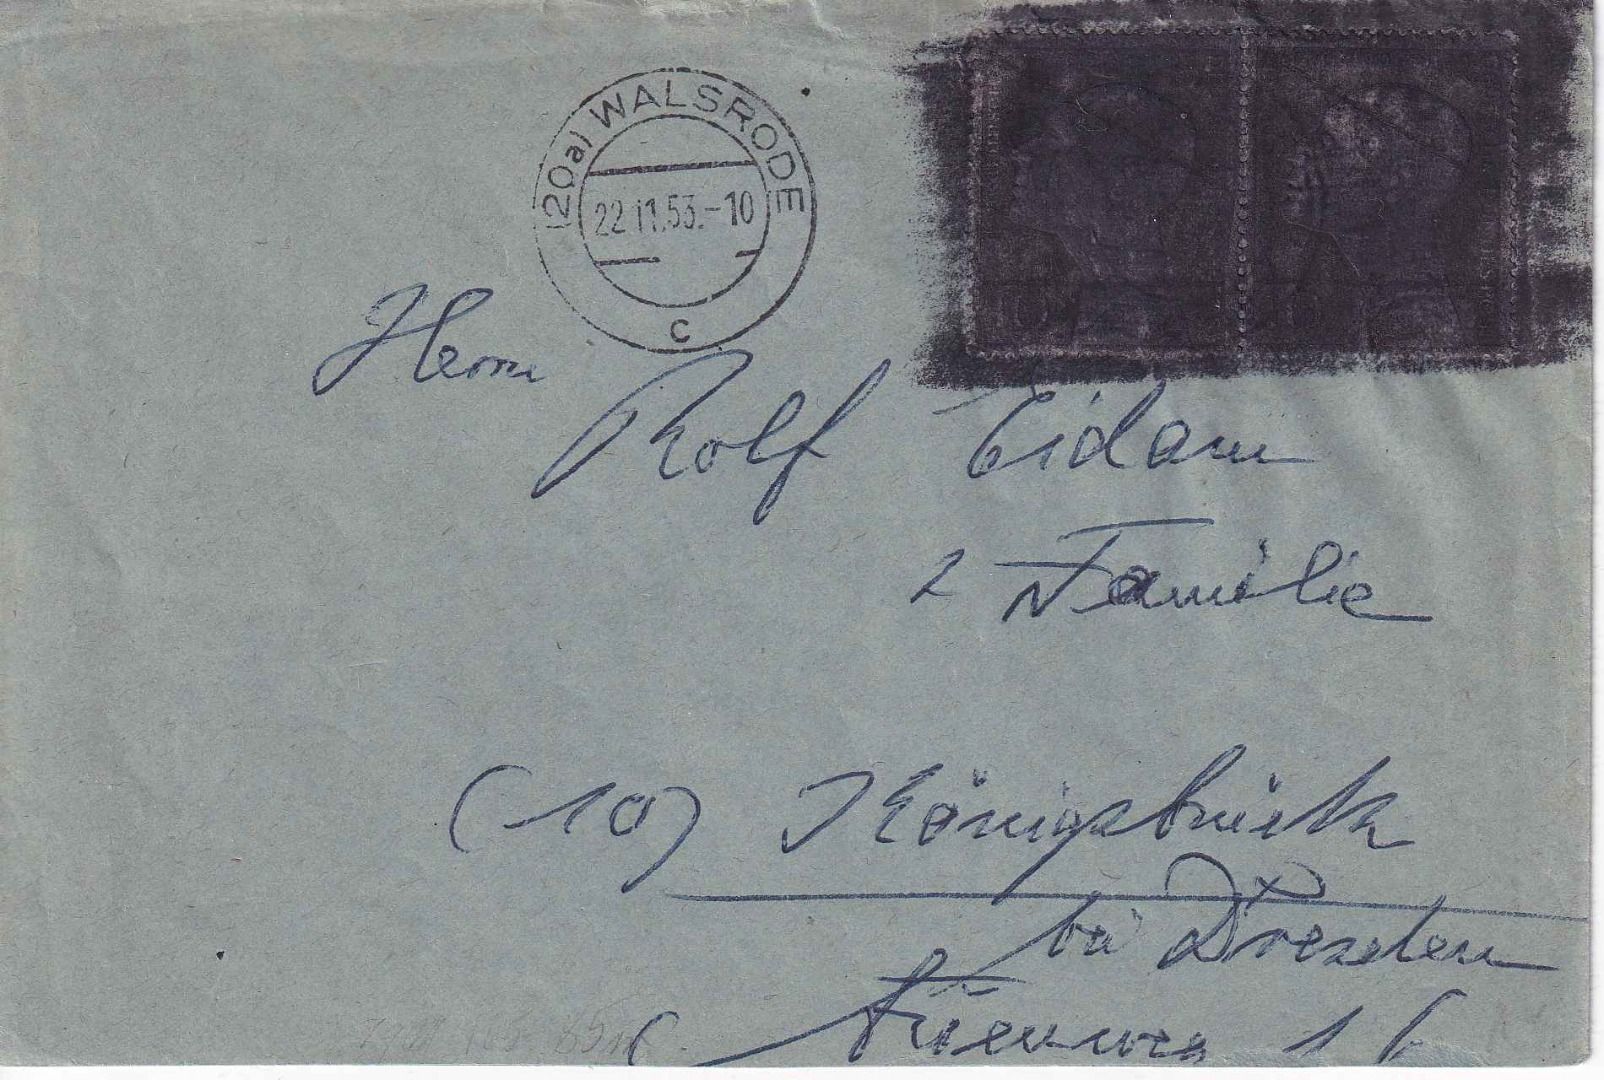 (20a) WALSRODE
22.11.53.-10
c
Herrn
Rolf Eidam
2 Familie
(10) Königsbrück
bei Dresden